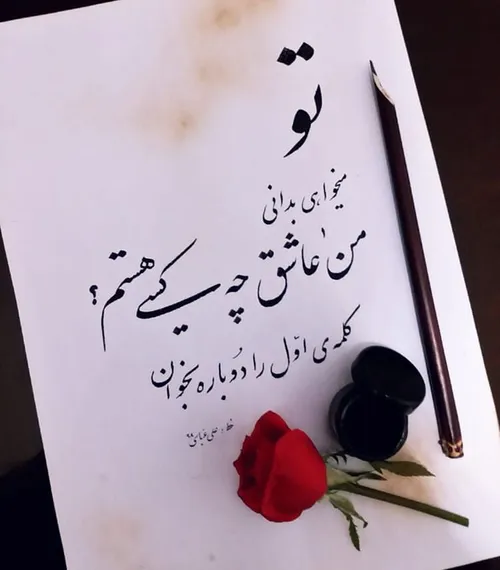 تو
میخواهی بدانی
من عاشق چه کسی هستم؟
کلمه‌ی اوّل را دوباره بخوان
خط: علی